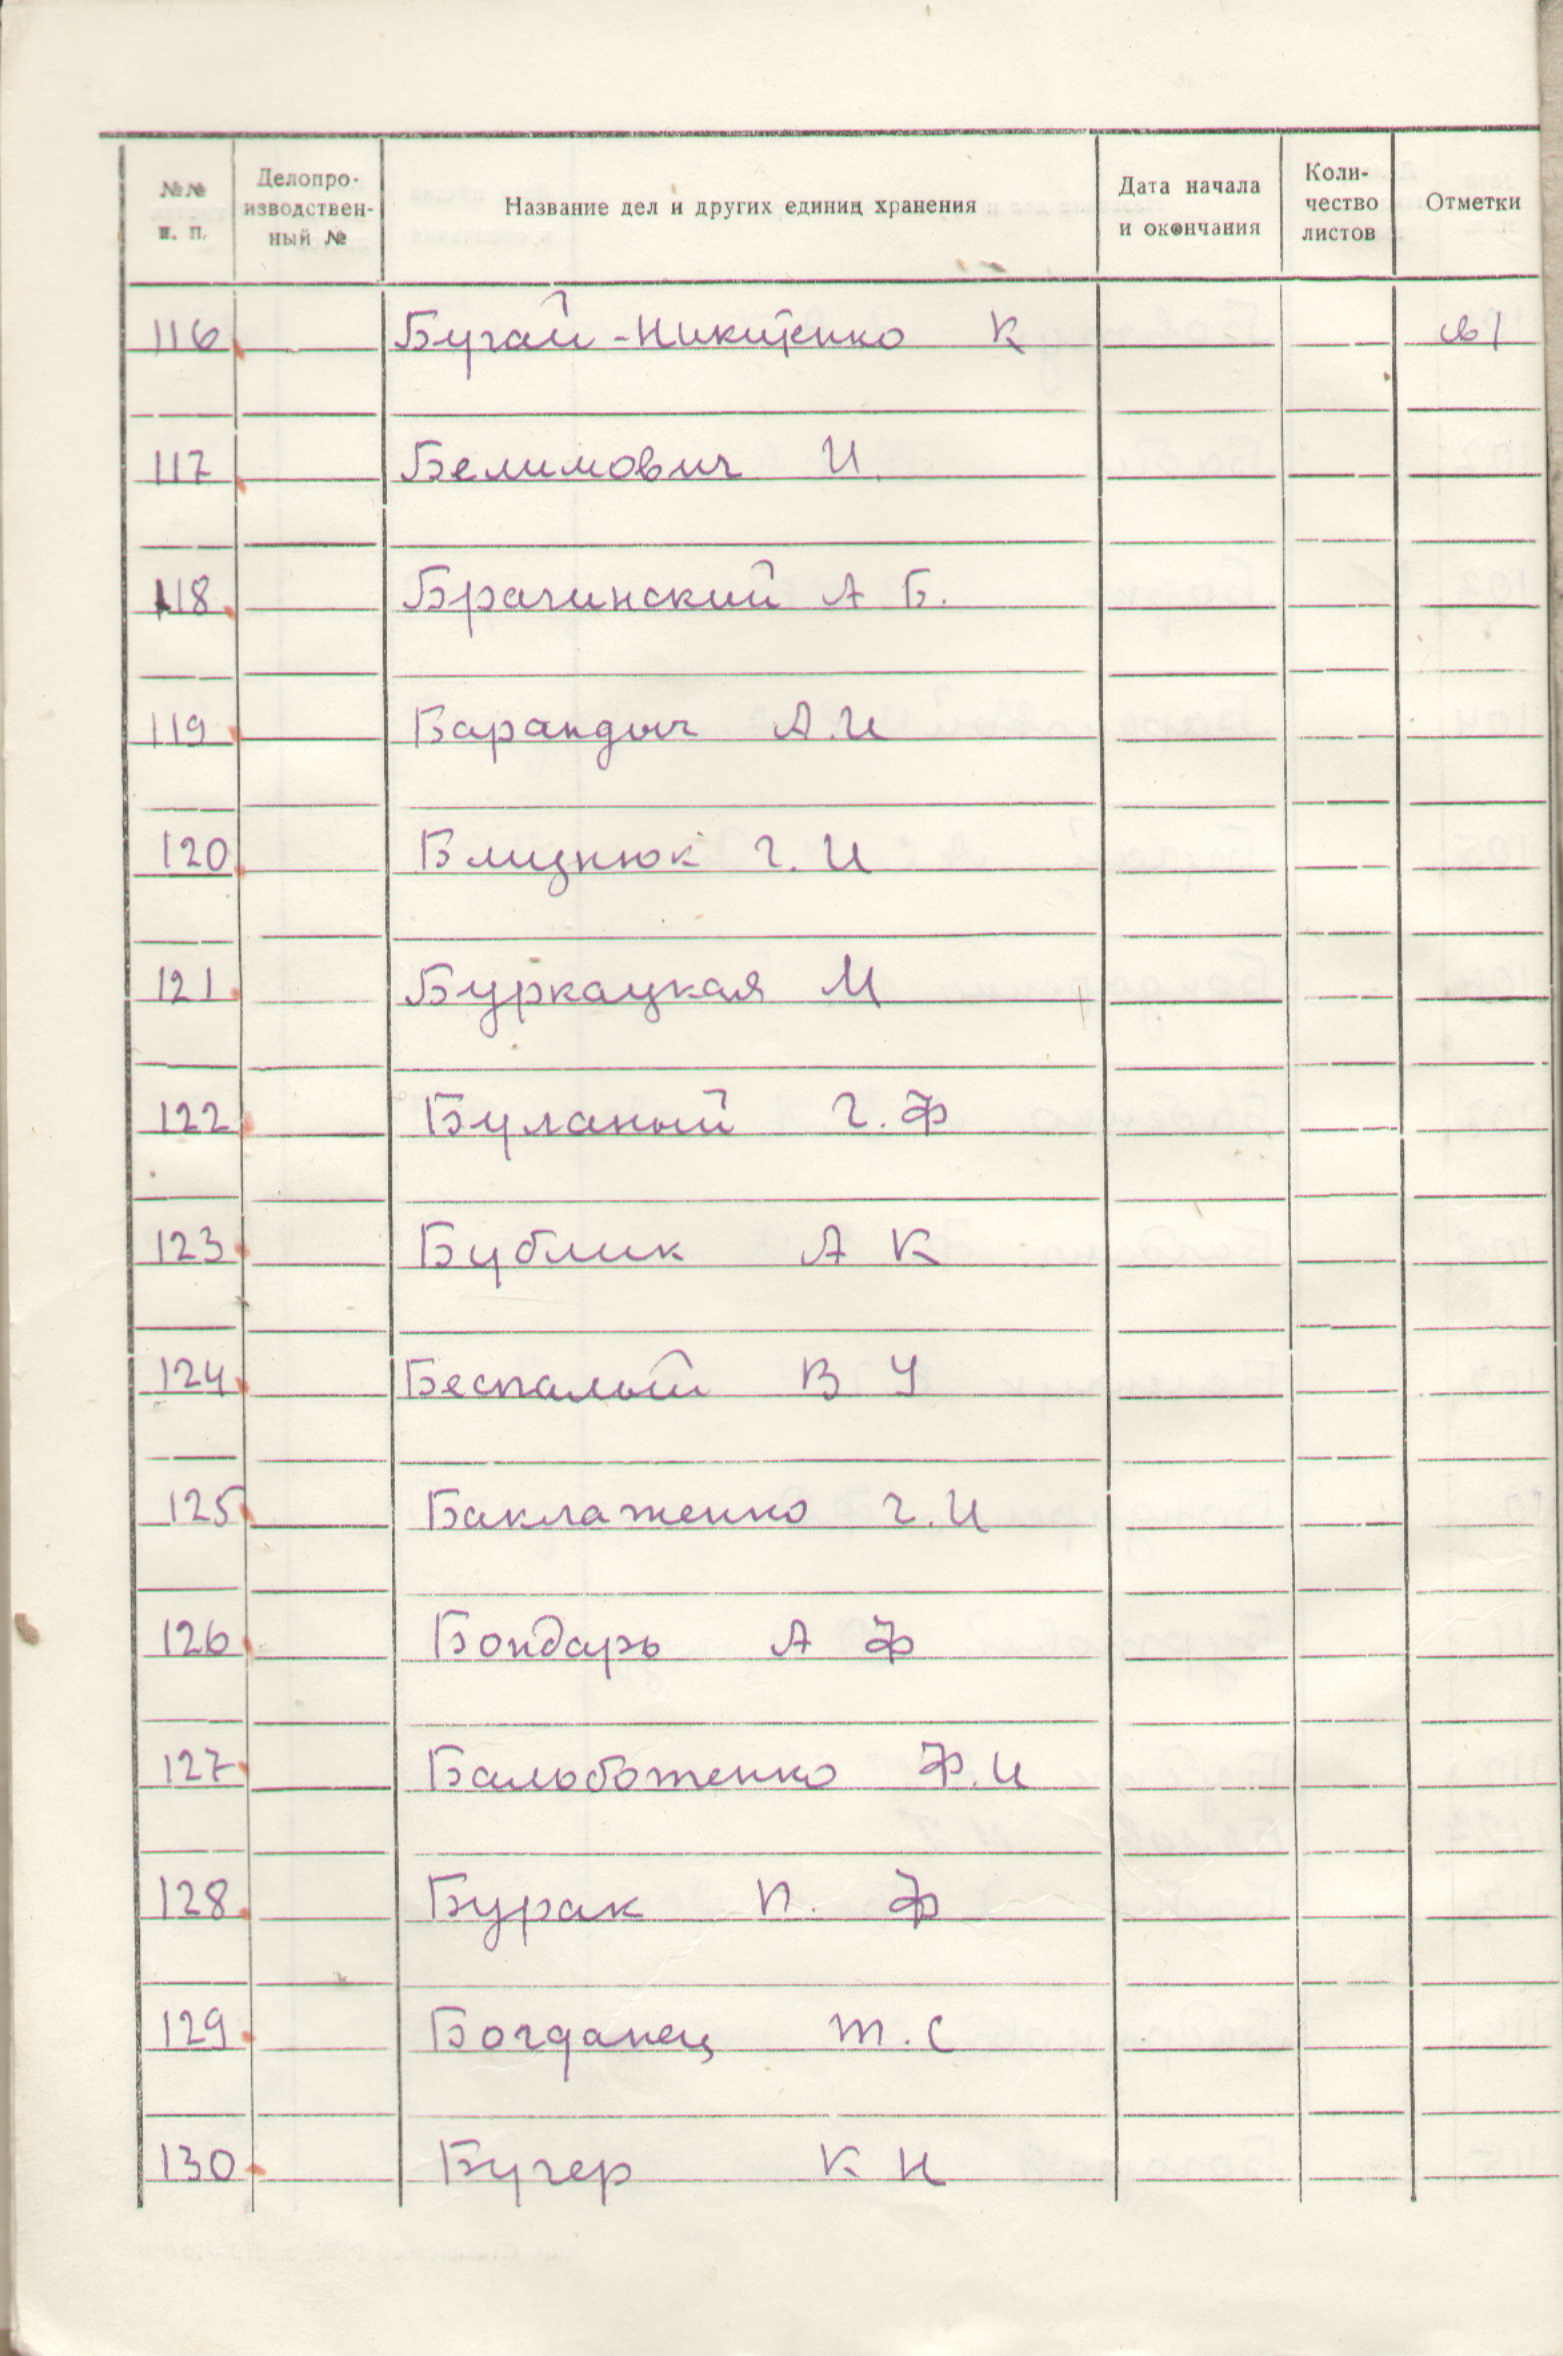 №№ п. п. Делопроизводственный № Название дел и других единиц хранения Дата начала и окончания Количество листов Отметки
116 Бугай-Никитенко К
117 Белимович И.
118 Брачинский А Б.
119 Барандыч А.И
120 Близнюк Г. И
121 Буркацкая М
122 Буланый Г. Ф
123 Бублик А К
124 Беспалый В У
125 Баклаженко Г. И
126 Бондарь А Ф
127 Бальобоженко Ф. И
128 Бурак П. Ф
129 Богданец Т. С
130 Бугер К Н